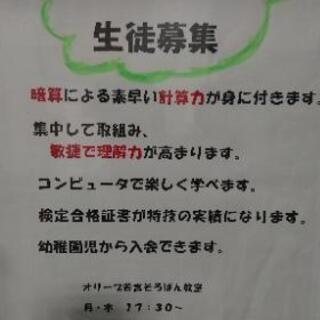 生徒募集
暗算による素早い計算力が身に付きます。
集中して取組み、
敏捷で理解力が高まります。
コンピュータで楽しく学べます。
検定合格証書が特技の実績になります。
幼稚園児から入会できます。
オリーブ若宮そろばん教室
月・木 17:30～